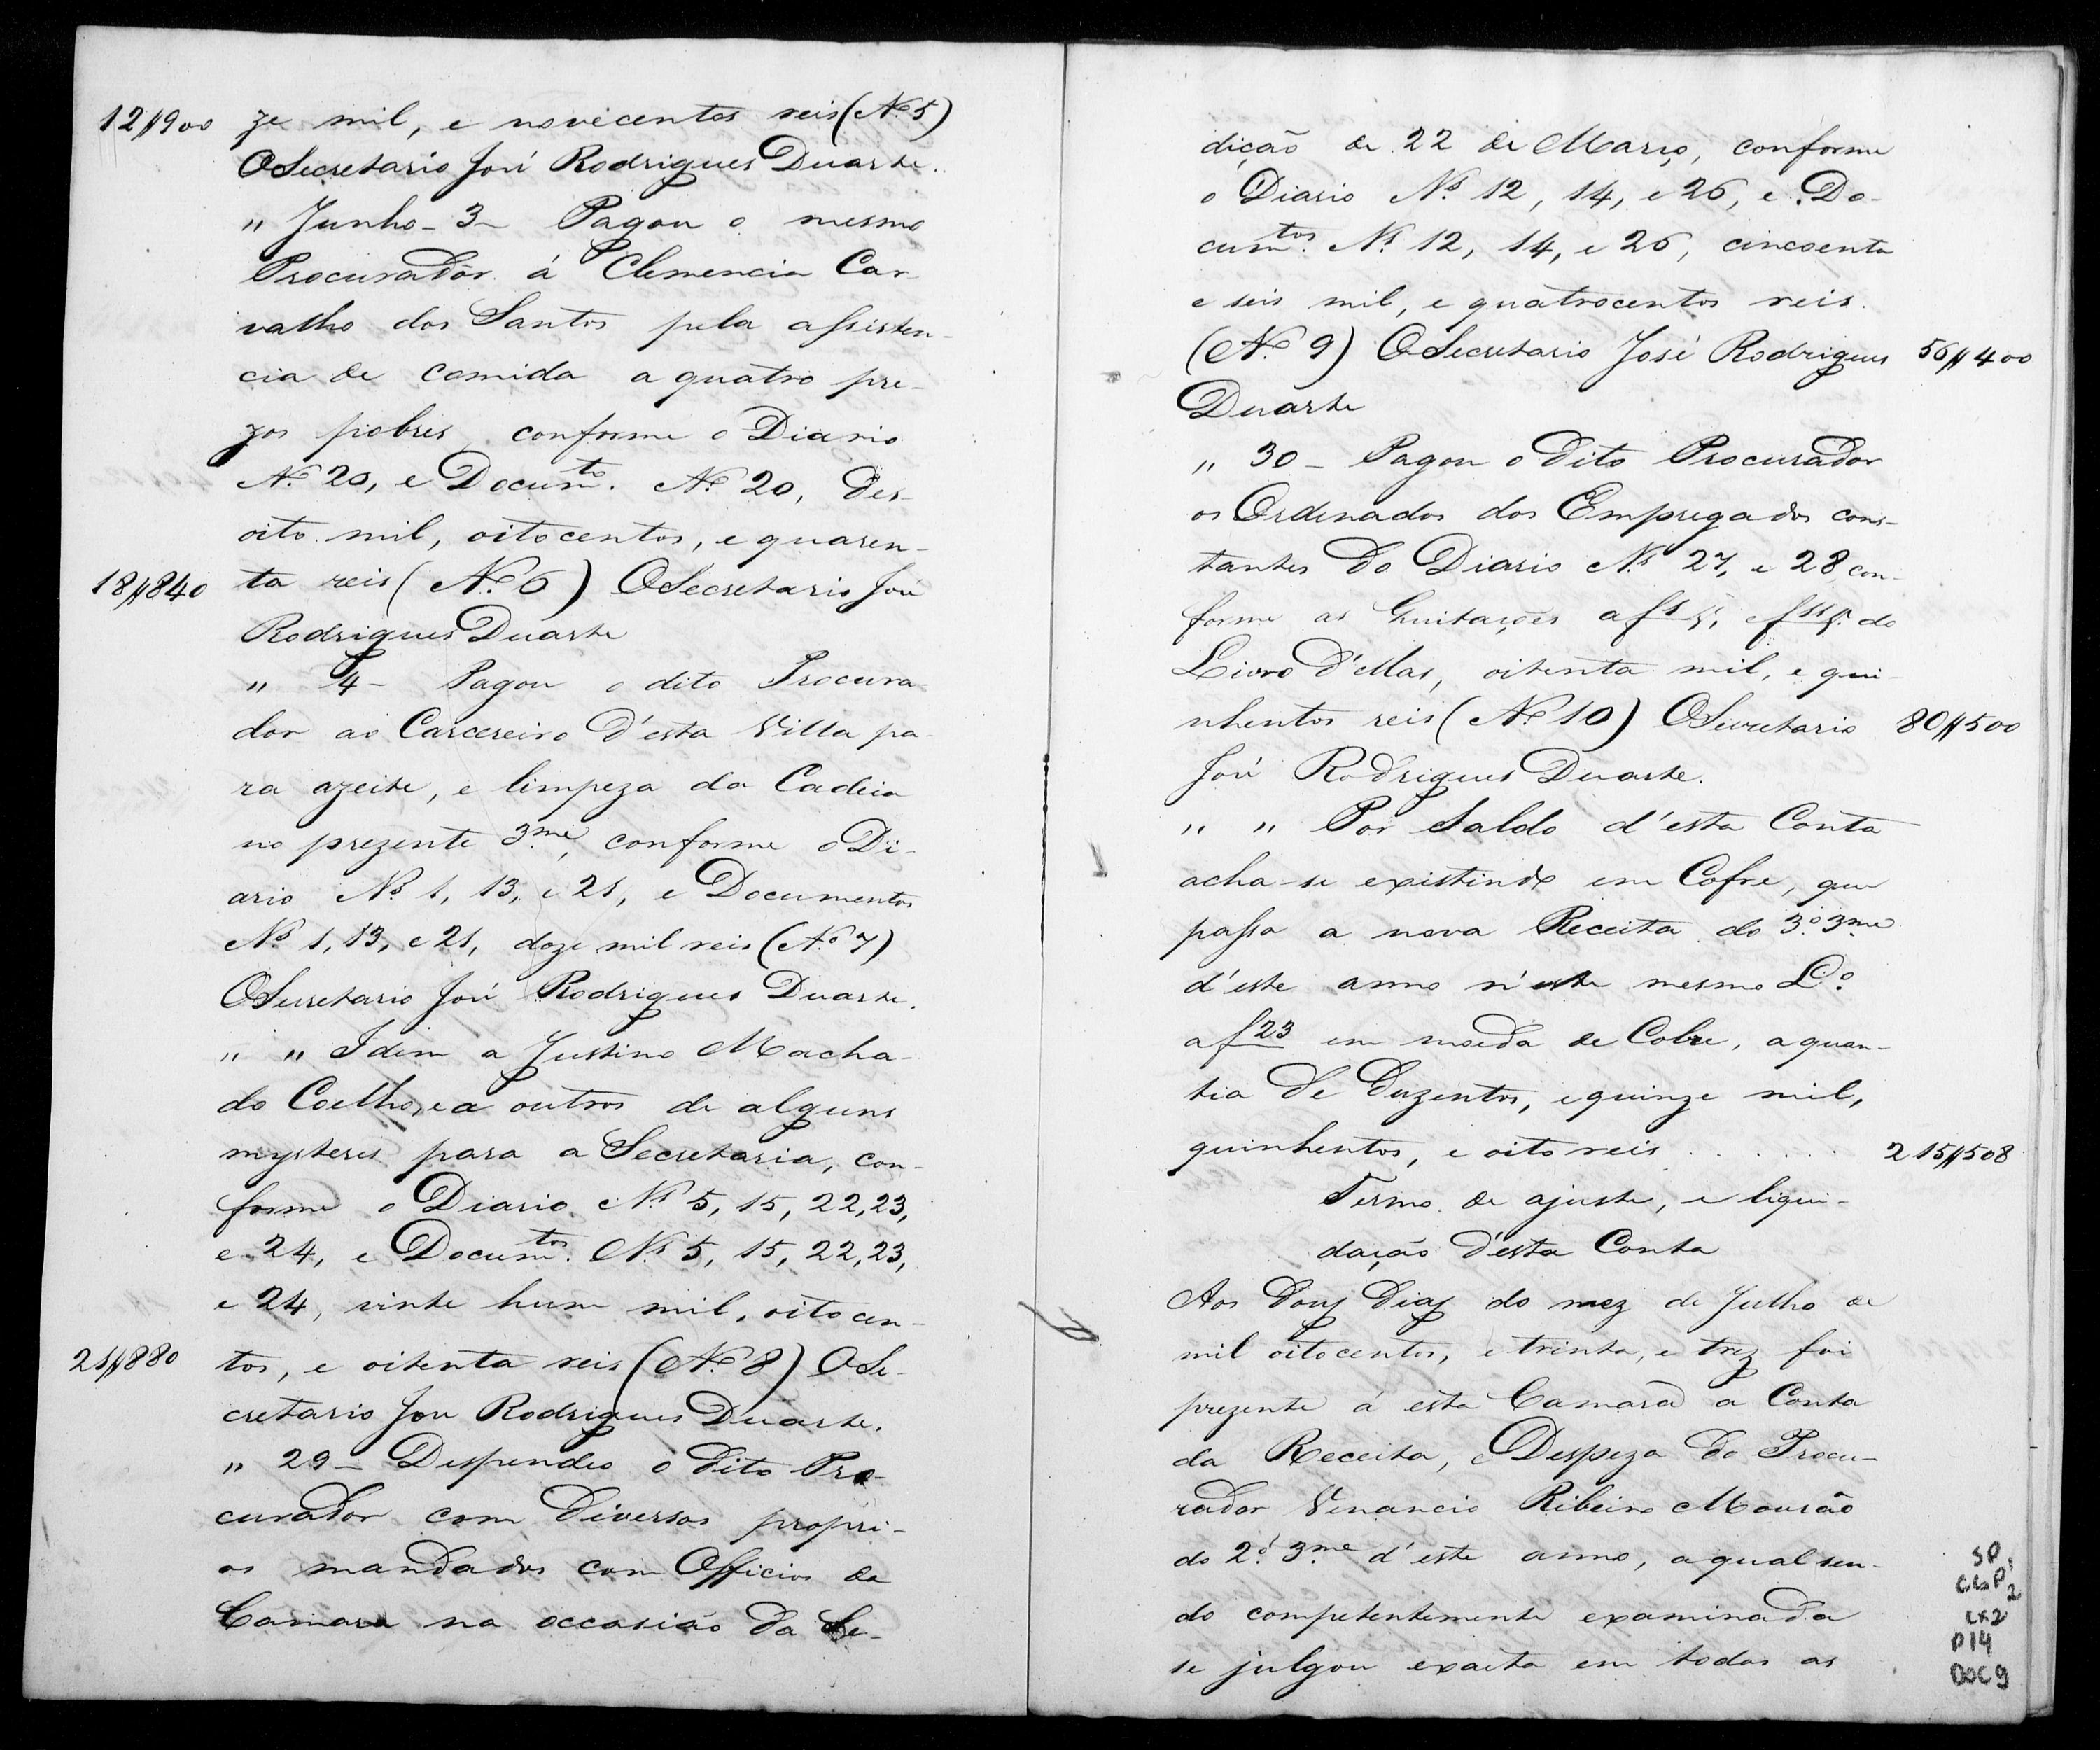 12$900 ze mil, e novecentos reis (Nº 5)
O Secretario José Rodrigues Duarte.
" Junho - 3 - Pagou o mesmo
Procurador á Clemencia Car-
valho dos Santos pela assisten-
cia de comida a quatro pre-
zos pobres, conforme o Diario
Nº 20, e Documto. Nº 20, des-
oito mil, oitocentos, e quaren-
18$840 ta reis (Nº 6) O Secretario José
Rodrigues Duarte
" 4 - Pagou o dito Procura-
dor ao Carcereiro d'esta Villa pa-
ra azeite, e limpeza da Cadeia
no prezente 3me, conforme o Di-
ario Ns. 1, 13, e 21, e Documentos
Ns. 1, 13, e 21, doze mil reis (Nº 7)
O Secretario José Rodrigues Duarte.
" " Idem a Justino Macha-
do Coelho, e a outros de alguns
mysteres para a Secretaria, con-
forme o Diario Ns. 5, 15, 22, 23,
e 24, e Documtos. Ns. 5, 15, 22, 23,
e 24, vinte hum mil, oitocen-
21$880 tos, e oitenta reis (Nº 8) O Se-
cretario José Rodrigues Duarte.
" 29 - Despendeo o dito Pro-
curador com diversos propri-
os mandados com Officios da
Camara na occasião da Se-
dição de 22 de Março, conforme
o Diario Ns. 12, 14, e 26, e Do-
cumtos. Ns. 12, 14, e 26, cincoenta
e seis mil, e quatrocentos reis.
(Nº 9) O Secretario José Rodrigues 56$400
Duarte
" 30 - Pagou o dito Procurador
os Ordenados dos Empregados cons-
tantes do Diario Ns. 27, e 28 con-
forme as Quitações a fs 5, e fs 5. do
Livro d'ellas, oitenta mil, e qui-
nhentos reis (Nº 10) O Secretario 80$500
José Rodrigues Duarte.
" " Por Saldo d'esta Conta
acha-se existindo em Cofre, que
passa a nova Receita do 3º 3me
d'este anno n'este mesmo Lº
a f 23 em moeda de Cobre, a quan-
tia de duzentos, e quinze mil,
quinhentos, e oito reis . . . . . . 215$508
Termo de ajuste, e liqui-
dação d'esta Conta
Aos dous dias do mez de Julho de
mil oitocentos, e trinta, e trez foi
prezente á esta Camara a Conta
da Receita, e Despeza do Procu-
rador Venancio Ribeiro Mourão
do 2º 3me d'este anno, a qual sen-
do competentemente examinada
se julgou exacta em todas as
SP
CGP2
CX2
P14
DOC9